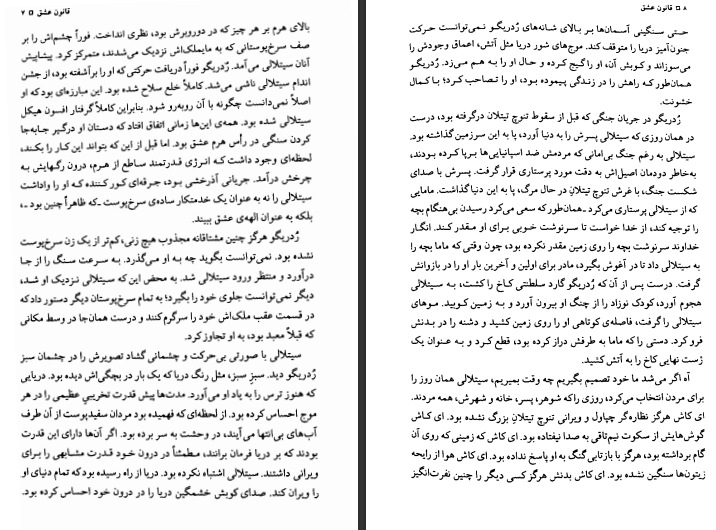 ۸ □ قانون عشق
حـتی سنگینی آسمان‌ها بـر بـالای شـانه‌های رُدریگـو نـمی‌توانست حـرکت
جنون‌آمیز دریا را متوقف کند. موج‌های شور دریا مثل آتش، اعماق وجودش را
می‌سوزاند و کـوبش آن، او را گیج کرده و حال او را به هـم مـی‌زد. رُدریگـو
همان‌طور کـه راهش را در زنـدگی پیموده بـود، او را تـصاحب کـرد؛ بـا کـمال
خشونت.
رُدریگو در جریان جنگی که قبل از سقوط تنوچ تیتلان درگرفته بود، درست
در همان روزی که سیتلالی پسرش را به دنیا آورد، پا به این سرزمین گذاشته بود.
سیتلالی به رغم جنگ بی‌امانی که مردمش ضد اسپانیایی‌ها برپا کرده بـودند،
به‌خاطر دودمان اصیل‌اش به دقت مورد پرستاری قرار گرفت. پسرش با صدای
شکست جنگ، با غرش تنوچ تیتلانِ در حال مرگ، پا به این دنیا گذاشت. مامایی
که از سیتلالی پرستاری می‌کرد ـ همان‌طور که سعی می‌کرد رسیدن بی‌هنگام بچه
را توجیه کند، از خدا خواست تا سرنوشت خـوبی بـرای او مـقدر کـند. انگـار
خداوند سرنوشت بچه را روی زمین مقدر نکرده بود، چون وقتی که ماما بچه را
به سیتلالی داد تا در آغوش بگیرد، مادر برای اولین و آخرین بار او را در بازوانش
گرفت. درست پس از آن که رُدریگو گارد سلطنتی کـاخ را کشت، بـه سیتلالی
هجوم آورد، کودک نوزاد را از چنگ او بیرون آورد و بـه زمـین کـوبید. مـوهای
سیتلالی را گرفت، فاصله‌ی کوتاهی او را روی زمین کشید و دشنه را در بـدنش
فرو کرد. دستی را که ماما به طرفش دراز کرده بود، قطع کـرد و بـه عـنوان یک
ژست نهایی کاخ را به آتش کشید.
آه اگر می‌شد ما خود تصمیم بگیریم چه وقت بمیریم، سیتلالی همان روز را
برای مردن انتخاب می‌کرد، روزی را که شوهر، پسر، خانه و شهرش، همه مردند.
ای کاش هرگز نظاره‌گر چپاول و ویرانی تنوچ تیتلانِ بزرگ نشده بود. ای کـاش
گوش‌هایش از سکوت نی‌تاقی به صدا نیفتاده بود. ای کاش که زمینی که روی آن
گام برداشته بود، هرگز با بازتابی گنگ به او پاسخ نداده بود. ای کاش هوا از رایحه
زیتون‌ها سنگین نشده بود. ای کاش بدنش هرگز کسی دیگر را چنین نفرت‌انگیز
قانون عشق □ ۷
بالای هرم بر هر چیز که در دوروبرش بود، نظری انداخت. فوراً چشم‌اش را بر
صف سرخ‌پوستانی که به مایملک‌اش نزدیک می‌شدند، متمرکز کرد. پیشاپیش
آنان سیتلالی می‌آمد. رُدریگو فوراً دریافت حرکتی که او را برآشفته بود، از جشن
اندام سیتلالی ناشی می‌شد. کاملاً خلع سلاح شده بود. این مبارزه‌ای بود که او
اصلاً نمی‌دانست چگونه با آن روبه‌رو شود. بنابراین کاملاً گرفتار افسون هیکل
سیتلالی شده بود. همه‌ی این‌ها زمانی اتفاق افتاد که دستان او درگیر جابه‌جا
کردن سنگی در رأس هرم عشق بود. اما قبل از این که بتواند این کـار را بکـند،
لحظه‌ای وجود داشت کـه انـرژی قـدرتمند سـاطع از هـرم، درون رگـهایش بـه
چرخش درآمد. جریانی آذرخشی بـود، جرقه‌ای کـور کـننده کـه او را واداشت
سیتلالی را نه به عنوان یک خدمتکار ساده‌ی سرخ‌پوست ـ که ظاهراً چنین بود ـ،
بلکه به عنوان الهه‌ی عشق ببیند.
رُدریگو هرگز چنین مشتاقانه مجذوب هیچ زنی، کم‌تر از یک زن سرخ‌پوست
نشده بود. نمی‌توانست بگوید چه به او می‌گذرد. بـه سـرعت سنگ را از جـا
درآورد و منتظر ورود سیتلالی شد. به محض این که سیتلالی نـزدیک او شـد،
دیگر نمی‌توانست جلوی خود را بگیرد؛ به تمام سرخ‌پوستان دیگر دستور داد که
در قسمت عقب ملک‌اش خود را سرگرم کنند و درست همان‌جا در وسط مکانی
که قبلاً معبد بود، به او تجاوز کرد.
سیتلالی با صورتی بی‌حرکت و چشمانی گشاد تصویرش را در چشمان سبز
رُدریگو دید. سبزِ سبز، مثل رنگ دریا که یک بار در بچگی‌اش دیده بود. دریایی
که هنوز ترس را به یاد او می‌آورد. مدت‌ها پیش قدرت تخریبی عظیمی را در هر
موج احساس کرده بود. از لحظه‌ای که فهمیده بود مردان سفیدپوست از آن طرف
آب‌های بی‌انتها می‌آیند، در وحشت به سر برده بود. اگر آن‌ها دارای این قدرت
بودند که بر دریا فرمان برانند، مـطمئناً در درون خـود قـدرت مشـابهی را بـرای
ویرانی داشتند. سیتلالی اشتباه نکرده بود. دریا از راه رسیده بود که تمام دنیای او
را ویران کند. صدای کوبش خشمگین دریا را در درون خود احساس کرده بود.